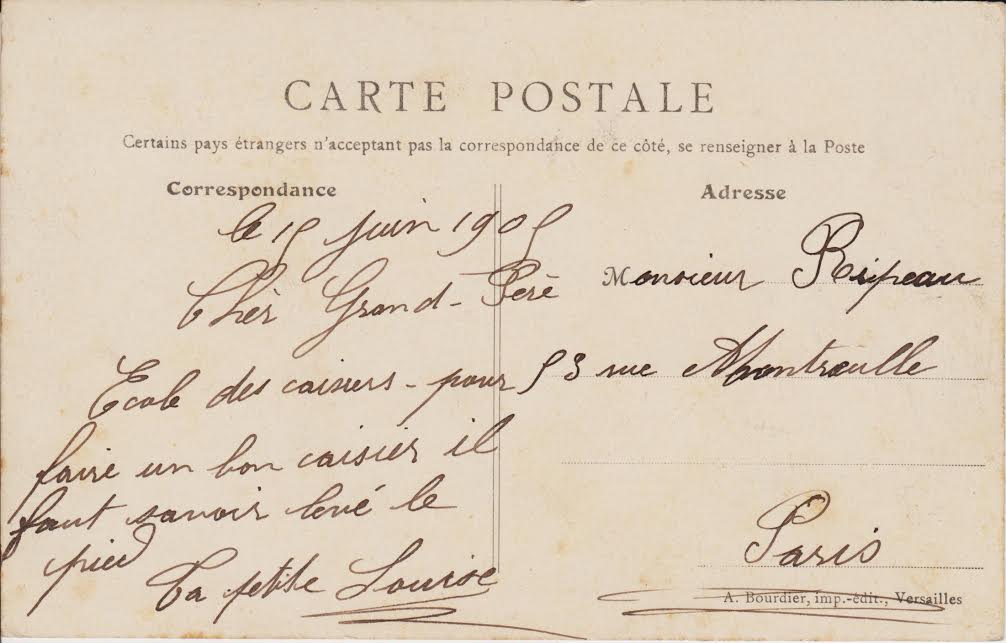 CARTE POSTALE
Certains pays étrangers n'acceptant pas la correspondance de ce côté, se renseigner à la Poste
Correspondance
le 15 Juin 1905
Chèr Grand-Père
Ecole des caisiers - pour
faire un bon caisier il
faut savoir levé le
pied
Ta petite Louise
Adresse
Monsieur Ripeau
53 rue Montreulle
Paris
A. Bourdier, imp.-édit., Versailles